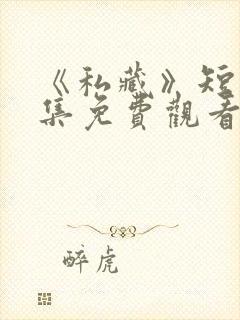 《私藏》短
集免費觀看
醉虎